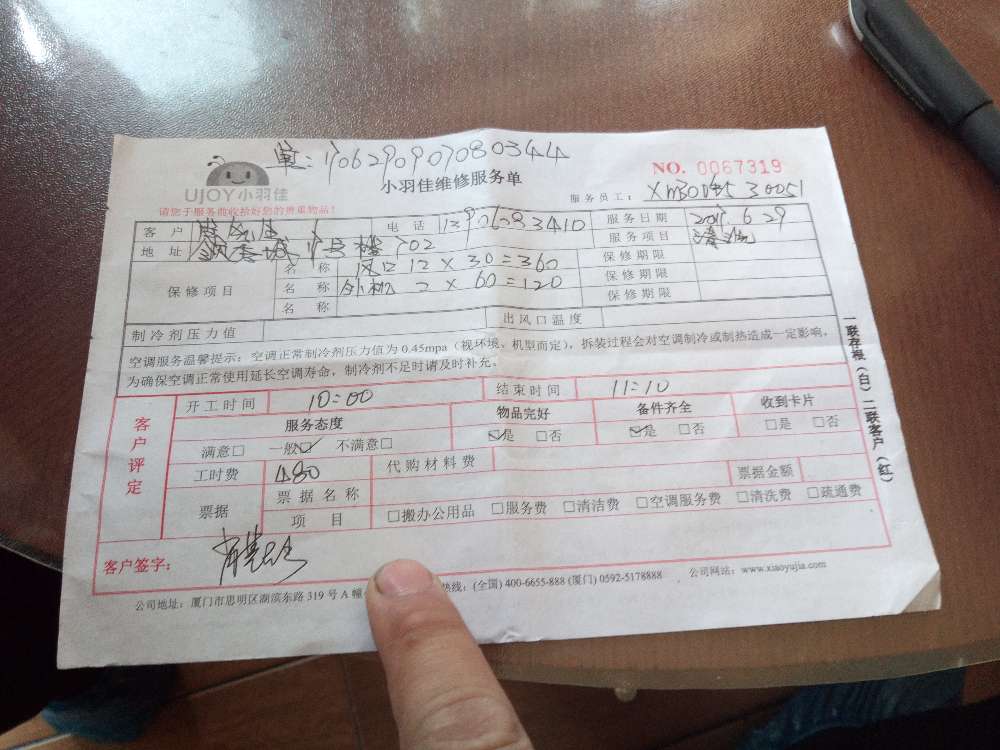 单: 190629090708034​4
NO. 0067319
UJOY小羽佳
小羽佳维修服务单
请您于服务前收拾好您的贵重物品!
服务员工: 30051
客户
电话 13906083410
服务日期 2019.6.29
地址 702
服务项目 清洗
保修项目
名称 风口 12 x 30 = 360
保修期限
名称 外机 2 x 60 = 120
保修期限
名称
保修期限
制冷剂压力值
出风口温度
空调服务温馨提示: 空调正常制冷剂压力值为 0.45mpa (视环境、机型而定), 拆装过程会对空调制冷或制热造成一定影响,
为确保空调正常使用延长空调寿命, 制冷剂不足时请及时补充。
客户评定
开工时间 10:00
结束时间 11:10
服务态度
物品完好
备件齐全
收到卡片
满意□ 一般☑ 不满意□
☑是 □否
☑是 □否
□是 □否
工时费 480
代购材料费
票据金额
票据
票据名称
项目 □搬办公用品 □服务费 □清洁费 □空调服务费 □清洗费 □疏通费
客户签字:
公司地址: 厦门市思明区湖滨东路 319 号 A 幢
热线: (全国) 400-6655-888 (厦门) 0592-5178888
公司网法: www.xiaoyujia.com
一联存根(白)二联客户(红)